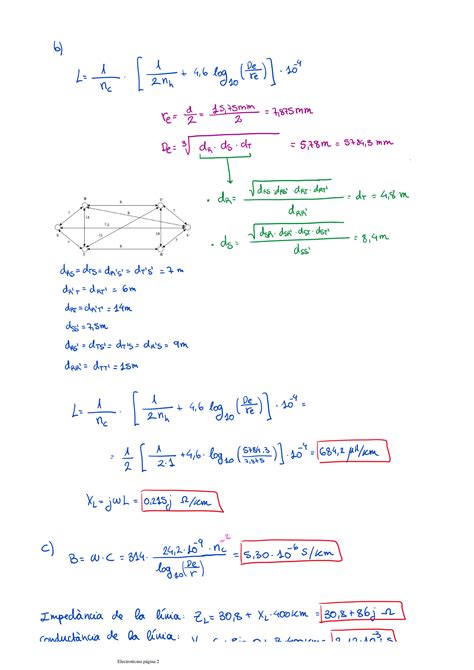 b)
L = 1/nc · [ 1/2nh + 4,6 log10 (De/re) ] · 10^-4
re = d/2 = 15,75mm/2 = 7,875 mm
De = ∛(dR · dS · dT) = 5,78 m = 5784,3 mm
· dR = √(dRS · dRS' · dRT · dRT') / dRR' = dT = 4,8 m
· dS = √(dSR · dSR' · dST · dST') / dSS' = 8,4 m
dRS = dTS = dR'S' = dT'S' = 7 m
dR'T = dRT' = 6m
dRT = dR'T' = 14m
dSS' = 7,5m
dRS' = dTS' = dT'S = dR'S = 9m
dRR' = dTT' = 15m
L = 1/nc · [ 1/2nh + 4,6 log10 (De/re) ] · 10^-4 =
= 1/2 [ 1/2·1 + 4,6 · log10 (5784,3/7,875) ] · 10^-4 = 684,2 μH/km
XL = jωL = 0,215j Ω/km
c)
B = ω · C = 314 · 24,2 · 10^-9 · nc^=2 / log10 (De/r) = 5,30 · 10^-6 S/km
Impedància de la línia: ZL = 30,8 + XL · 400km = 30,8 + 86j Ω
conductància de la línia:
Electrotècnia página 2